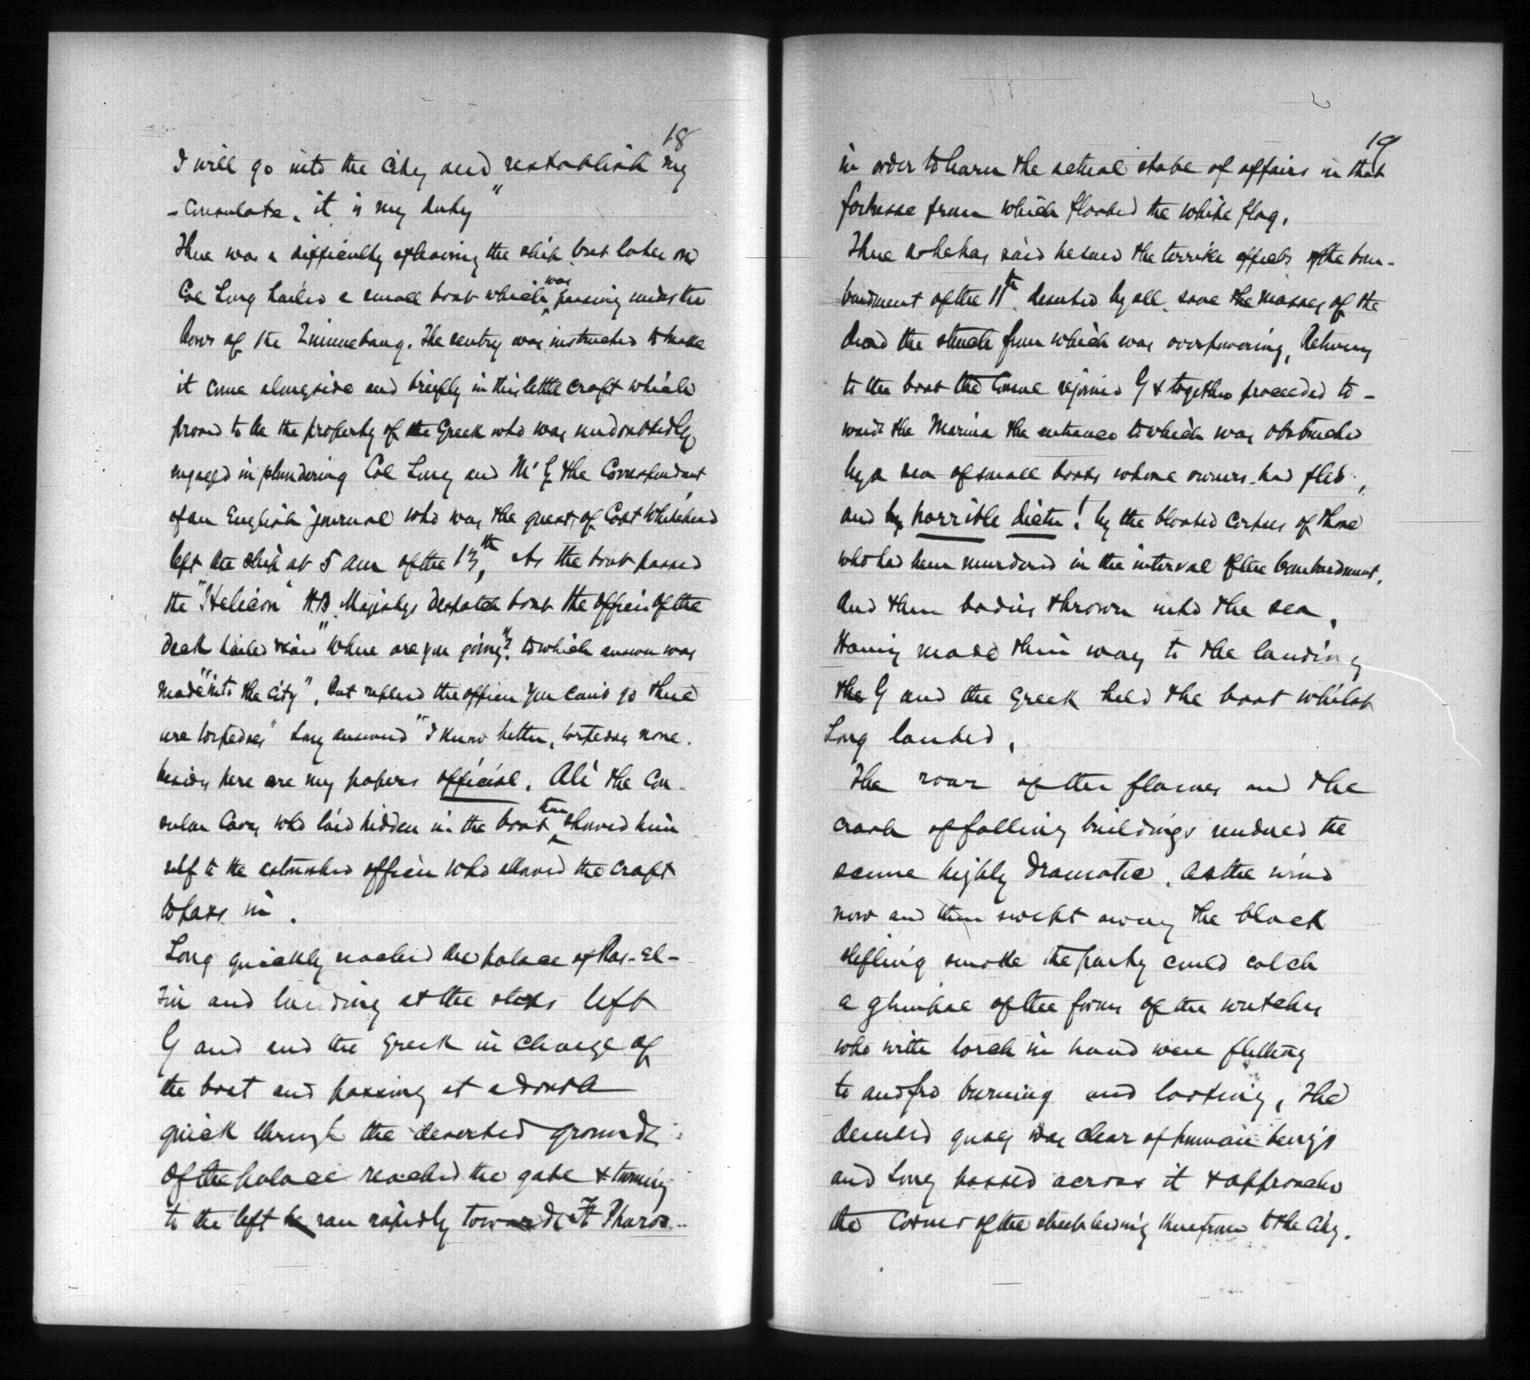 18
I will go into the City and reestablish my
-Consulate, it is my duty"
There was a difficulty of leaving the ship but later on
Col Long hailed a small boat which was passing under the
bows of the Quinnebaug. The sentry was instructed to make
it come alongside and briefly in this little craft which
proved to be the property of the Greek who was undoubtedly
engaged in plundering Col Long and Mr G. the Correspondent
of an English journal who was the guest of Capt Whitehead
left the ship at 5 am of the 13th. As the boat passed
the "Helicon" H.B. Majestys despatch boat the officer of the
deck hailed & said "Where are you going"? to which answer was
made "into the City". But replied the officer you can't go there
are torpedoes" Long answered "I know better, torpedoes none.
besides here are my papers official. Ali the Con-
sular Cavas who laid hidden in the boat then showed him
self to the astonished officer who allowed the craft
to pass in.
Long quickly reached the palace of Ras-el-
Tin and landing at the steps left
G and and the Greek in charge of
the boat and passing at a double
quick through the deserted grounds
of the palace reached the gate & turning
to the left he ran rapidly towards Ft Pharos
19
in order to learn the actual state of affairs in that
fortresse from which floated the white flag.
There as he has said he saw the terrible effects of the bom-
bardment of the 11th deserted by all save the masses of the
dead the stench from which was overpowering, Returning
to the boat the Consul rejoined G & together proceeded to-
wards the Marina the entrance to which was obstructed
by a sea of small boats whose owners had fled,
and by horrible dictu! by the bloated corpses of those
who had been murdered in the interval of the bombardment.
and their bodies thrown into the sea.
Having made their way to the landing
the G and the Greek held the boat whilst
Long landed.
The roar of the flames and the
crash of falling buildings rendered the
scene highly dramatic. As the wind
now and then swept away the black
stifling smoke the party could catch
a glimpse of the forms of the wretches
who with torch in hand were flitting
to and fro burning and looting, The
deserted quay was clear of human beings
and Long passed across it & approached
the Corner of the street leading therefrom to the City.